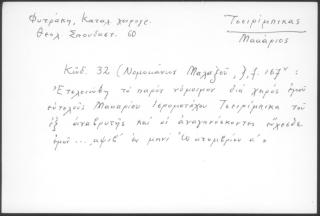 Φυτράκη, Καταλ. χειρογρ.
Θεολ. Σπουδαστ. 60
Τσειρίμπικας
Μακάριος
Κώδ. 32 (Νομοκάνων Μαλαξοῦ), f. 167ᵛ:
"Ἐτελειώθη τὸ παρὸν νόμιμον διὰ χειρὸς ἐμοῦ
εὐτελοῦς Μακαρίου Ἱερομονάχου Τσειρίμπικα τοῦ
ἐξ καὶ οἱ ἀναγινώσκοντες εὔχεσθε
ἐμοί... ἐν μηνὶ Ὀκτωμβρίου α'"